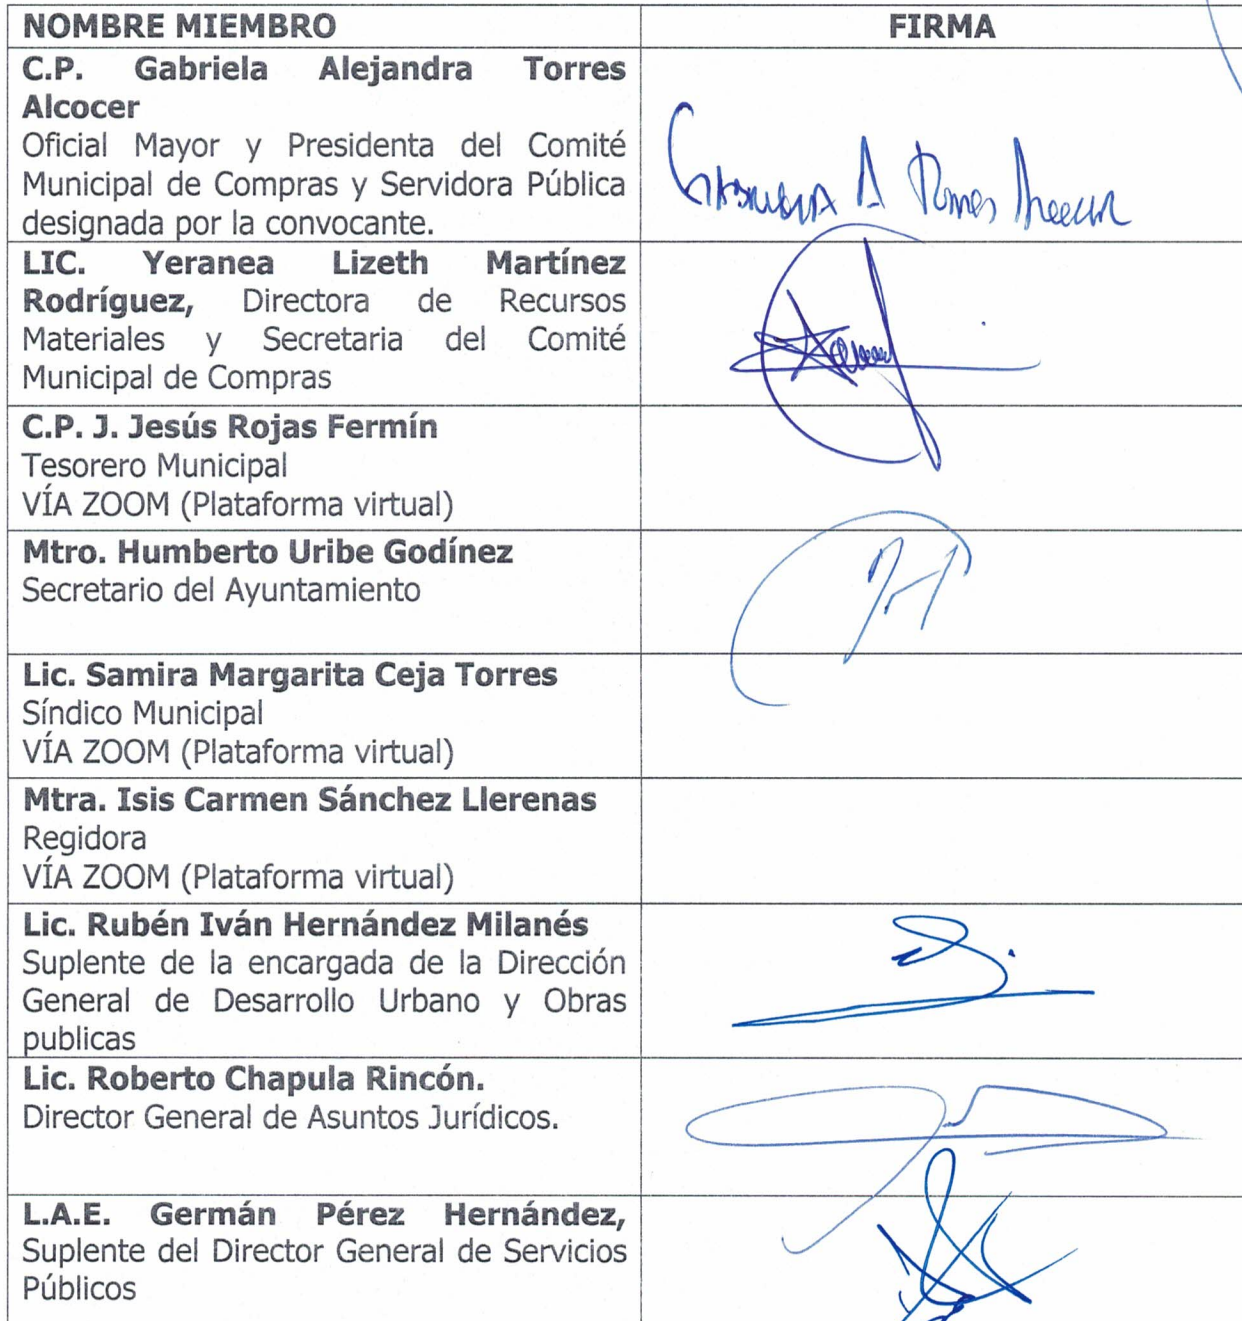 NOMBRE MIEMBRO FIRMA
C.P. Gabriela Alejandra Torres
Alcocer
Oficial Mayor y Presidenta del Comité
Municipal de Compras y Servidora Pública
designada por la convocante.
Gabriela A Torres Alcocer
LIC. Yeranea Lizeth Martínez
Rodríguez, Directora de Recursos
Materiales y Secretaria del Comité
Municipal de Compras
C.P. J. Jesús Rojas Fermín
Tesorero Municipal
VÍA ZOOM (Plataforma virtual)
Mtro. Humberto Uribe Godínez
Secretario del Ayuntamiento
Lic. Samira Margarita Ceja Torres
Síndico Municipal
VÍA ZOOM (Plataforma virtual)
Mtra. Isis Carmen Sánchez Llerenas
Regidora
VÍA ZOOM (Plataforma virtual)
Lic. Rubén Iván Hernández Milanés
Suplente de la encargada de la Dirección
General de Desarrollo Urbano y Obras
publicas
Lic. Roberto Chapula Rincón.
Director General de Asuntos Jurídicos.
L.A.E. Germán Pérez Hernández,
Suplente del Director General de Servicios
Públicos